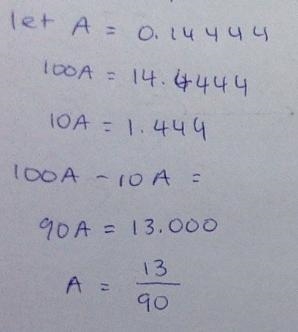 let A = 0.14444
100A = 14.4444
10A = 1.444
100A - 10A =
90A = 13.000
A = 13/90